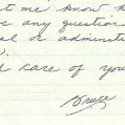 t me know h
ve any question
al or administ
s.
d care of you
Bruce